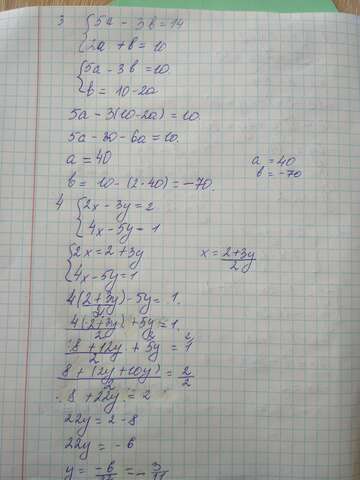 3 { 5a - 3b = 14
2a + b = 10
{ 5a - 3b = 10
b = 10 - 2a
5a - 3(10 - 2a) = 10
5a - 30 - 6a = 10.
a = 40 a = 40
b = 10 - (2 · 40) = -70. b = -70
4 { 2x - 3y = 2
4x - 5y = 1
{ 2x = 2 + 3y x = 2+3y/2y
4x - 5y = 1
4(2+3y)/2 - 5y = 1.
4(2+3y)/2 + 5y = 1.
8 + 12y/2 + 5y = 1
8 + 12y + 10y/2 = 2/2
8 + 22y = 2
22y = 2 - 8
22y = -6
y = -6/22 = -3/11